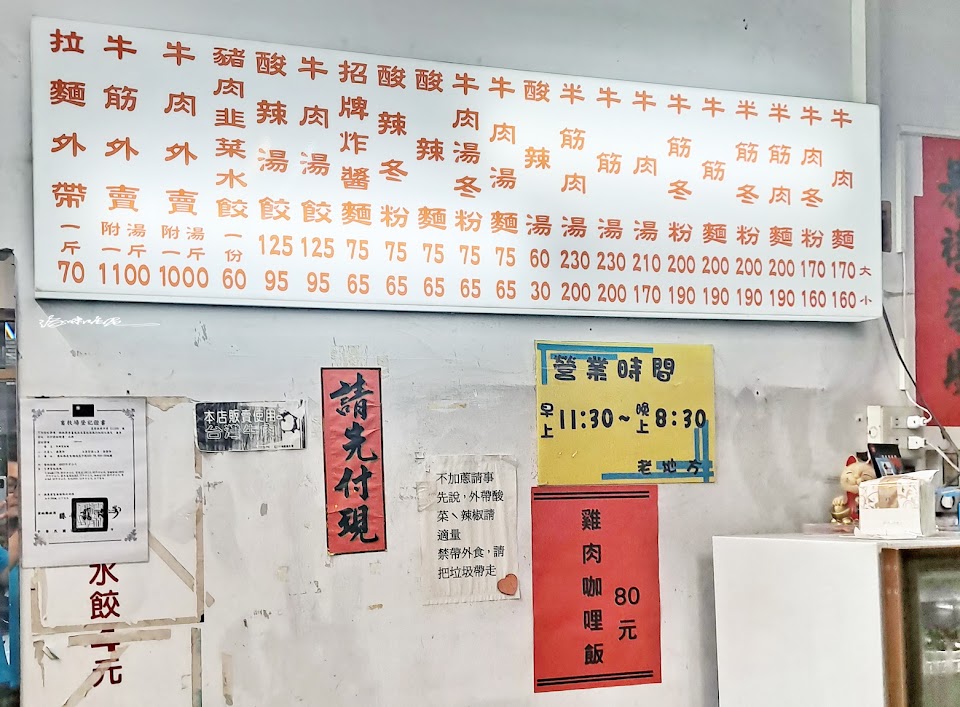 拉麵外帶 一斤 70
牛筋外賣 附湯一斤 1100
牛肉外賣 附湯一斤 1000
豬肉韭菜水餃 一份 60
酸辣湯餃 125 95
牛肉湯餃 125 95
招牌炸醬麵 75 65
酸辣冬粉 75 65
酸辣麵 75 65
牛肉湯冬粉 75 65
牛肉湯麵 75 65
酸辣湯 60 30
半筋肉湯 230 200
牛筋湯 230 200
牛肉湯 210 170
牛筋冬粉 200 190
牛筋麵 200 190
半筋肉冬粉 200 190
半筋肉麵 200 190
牛肉冬粉 170 160
牛肉麵 170 160
大 小
本店販賣使用
台灣牛肉
請先付現
營業時間
早上11:30~晚上8:30
老地方
不加蔥請事
先說,外帶酸
菜、辣椒請
適量
禁帶外食,請
把垃圾帶走
雞肉咖哩飯
80元
畜牧場登記證書
水餃
元